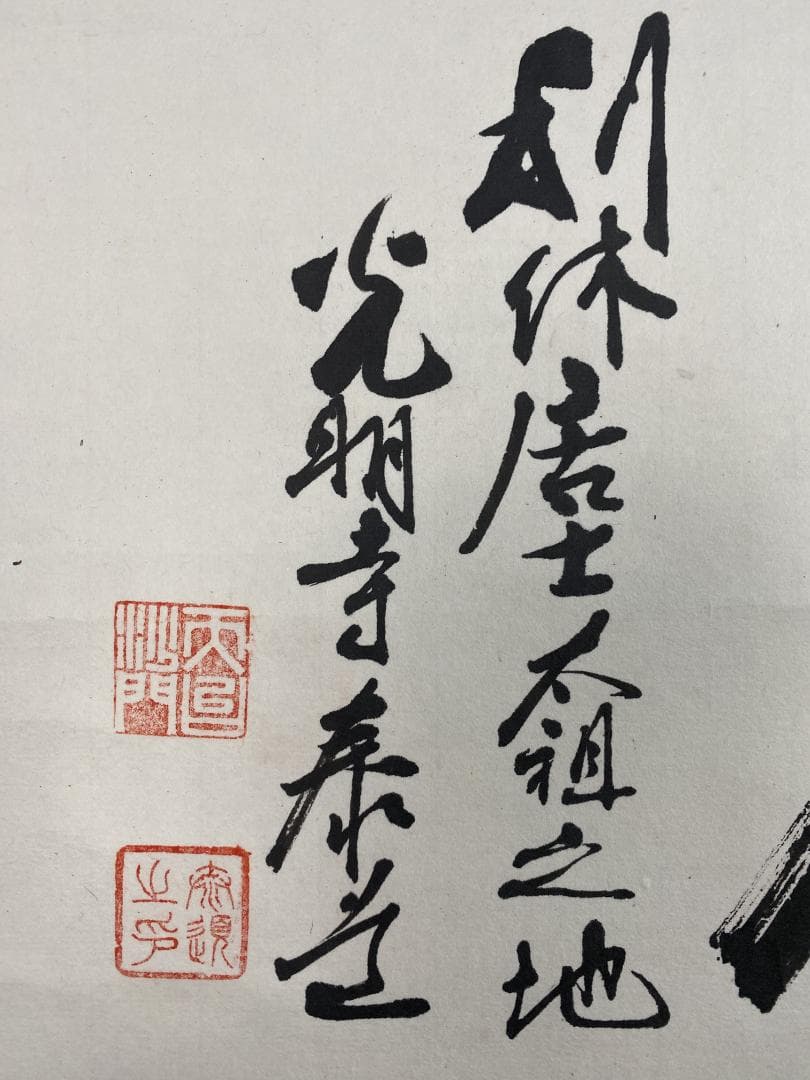 利休居士太祖之地
光明寺泰道
沙門
泰道之印